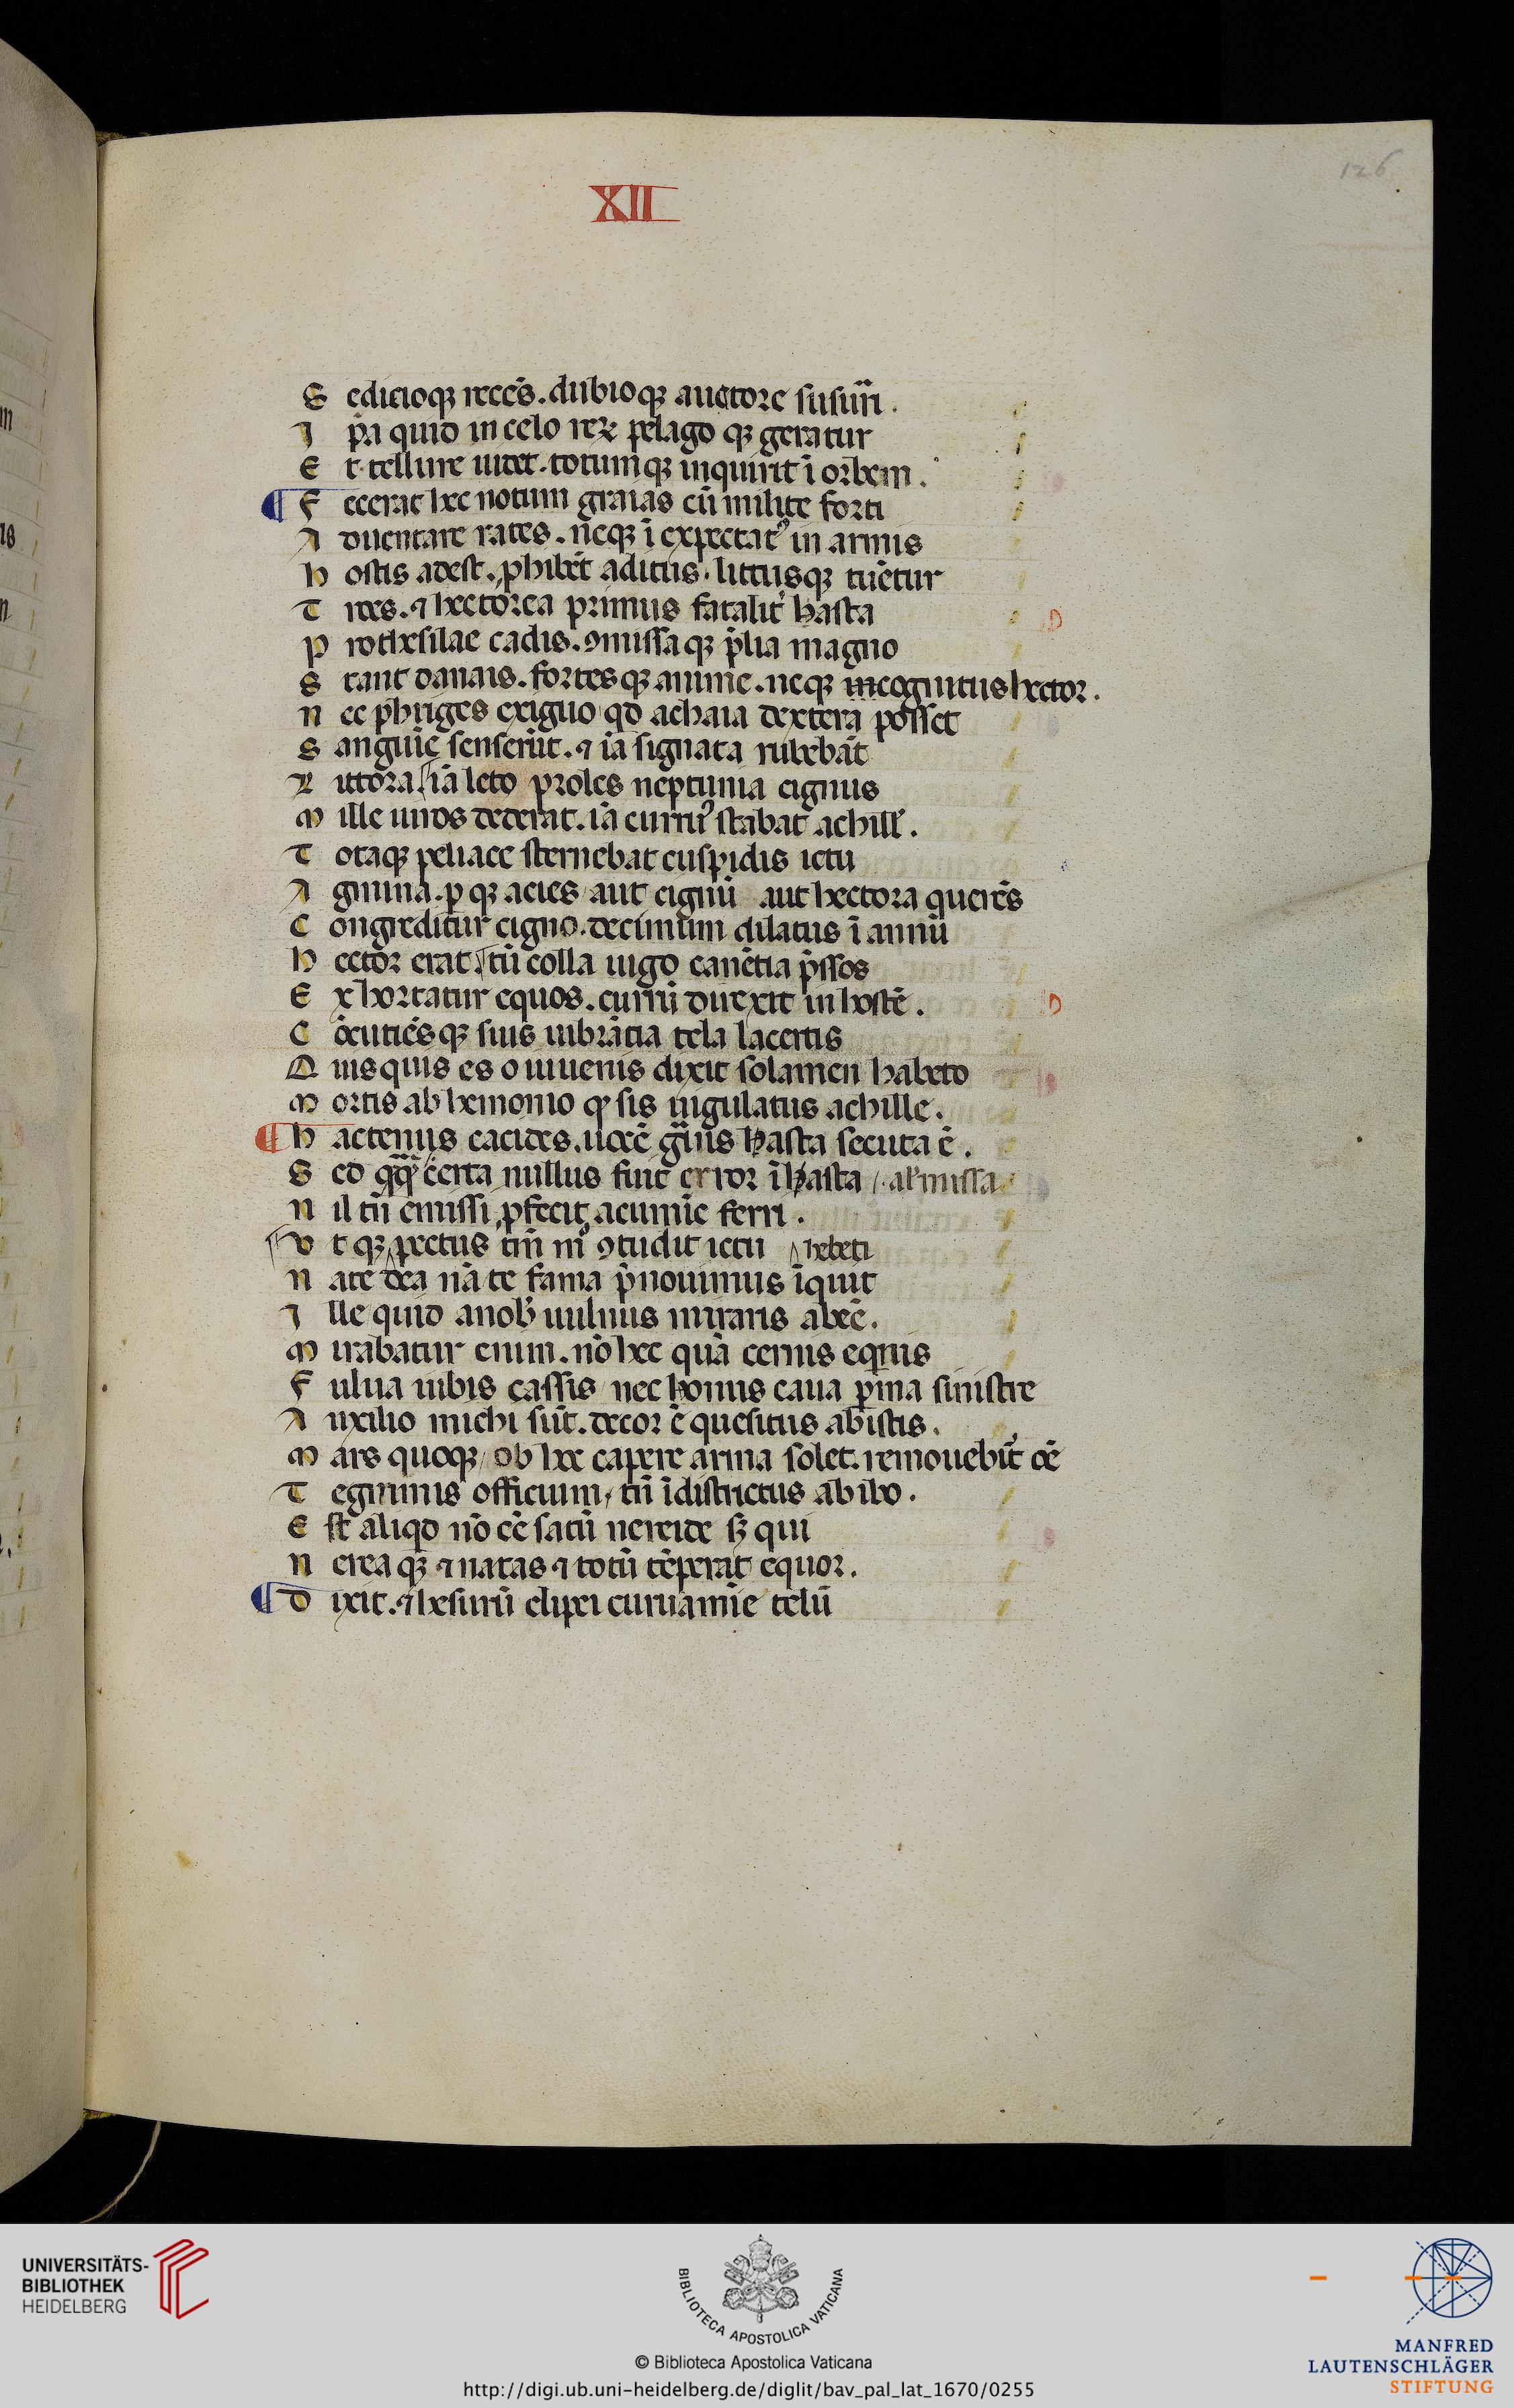 126
XII
S edicioqꝫ recēs. dubioqꝫ auctore susurri.
I pa quid in celo rerꝫ pelagoqꝫ geratur
E t. tellure uidet. totumqꝫ inquirit ī orbem.
¶ F ecerat hec notum graias cū milite forti
A duentare rates. neqꝫ ī expectatꝰ in armis
H ostis adest. ꝓhibēt aditus. littusqꝫ tuētur
T roes. ⁊ hectorea primus fatalit͛ hasta
P rothesilae cadis. ꝯmissaqꝫ p̄lia magno
S tant danais. fortesqꝫ anime. neqꝫ incognitus hector.
N ec phriges exiguo qd achaia dextera posset
S anguīe senserūt. ⁊ iā sigeata rubebāt
L ittora. iā leto proles neptunia cignus
M ille uiros dederat. iā curruꝰ stabat achill'.
T otaqꝫ peliace sternebat cuspidis ictu
A gmina. ꝑqꝫ acies aut cignū aut hectora querēs
C ongreditur cigno. decimum dilatus ī annū
H ector erat. tū colla iugo canētia p̄ssos
E xhortatur equos. currū direxit in hostē.
C ōcutiēsqꝫ suis uibrātia tela lacertis
Q uisquis es o iuuenis dixit solamen habeto
M ortis ab hemonio qꝫ sis iugulatus achille.
¶ H actenus eacides. uocē g̃uis hasta secuta ē.
S ed qꝫqꝫ certa nullus fuit error ī hasta
N il tn̄ emissi ꝓfecit acumīe ferri.
V tqꝫ pectus tm̄ mō ꝯtudit ictu hebeti
N ate dea nā te fama p̄nouimus īquit
I lle quid a nob' uulnus miraris abeē.
M irabatur enim. nō hec quā cernis equis
F ulua iubis cassis nec honus caua parma sinistre
A uxilio michi sūt. decor ē quesitus ab istis.
M ars quoqꝫ ob hec capere arma solet. remouebit͛ oē
T egminis officium, tn̄ īdistrictus abibo.
E st aliqd nō eē satū nereide sꝫ qui
N ereaqꝫ ⁊ natas ⁊ totū tēperat equor.
¶ D ixit. ⁊ hesurū clipei curuamīe telū
UNIVERSITÄTS-
BIBLIOTHEK
HEIDELBERG
BIBLIOTECA APOSTOLICA VATICANA
© Biblioteca Apostolica Vaticana
http://digi.ub.uni-heidelberg.de/diglit/bav_pal_lat_1670/0255
MANFRED
LAUTENSCHLÄGER
STIFTUNG